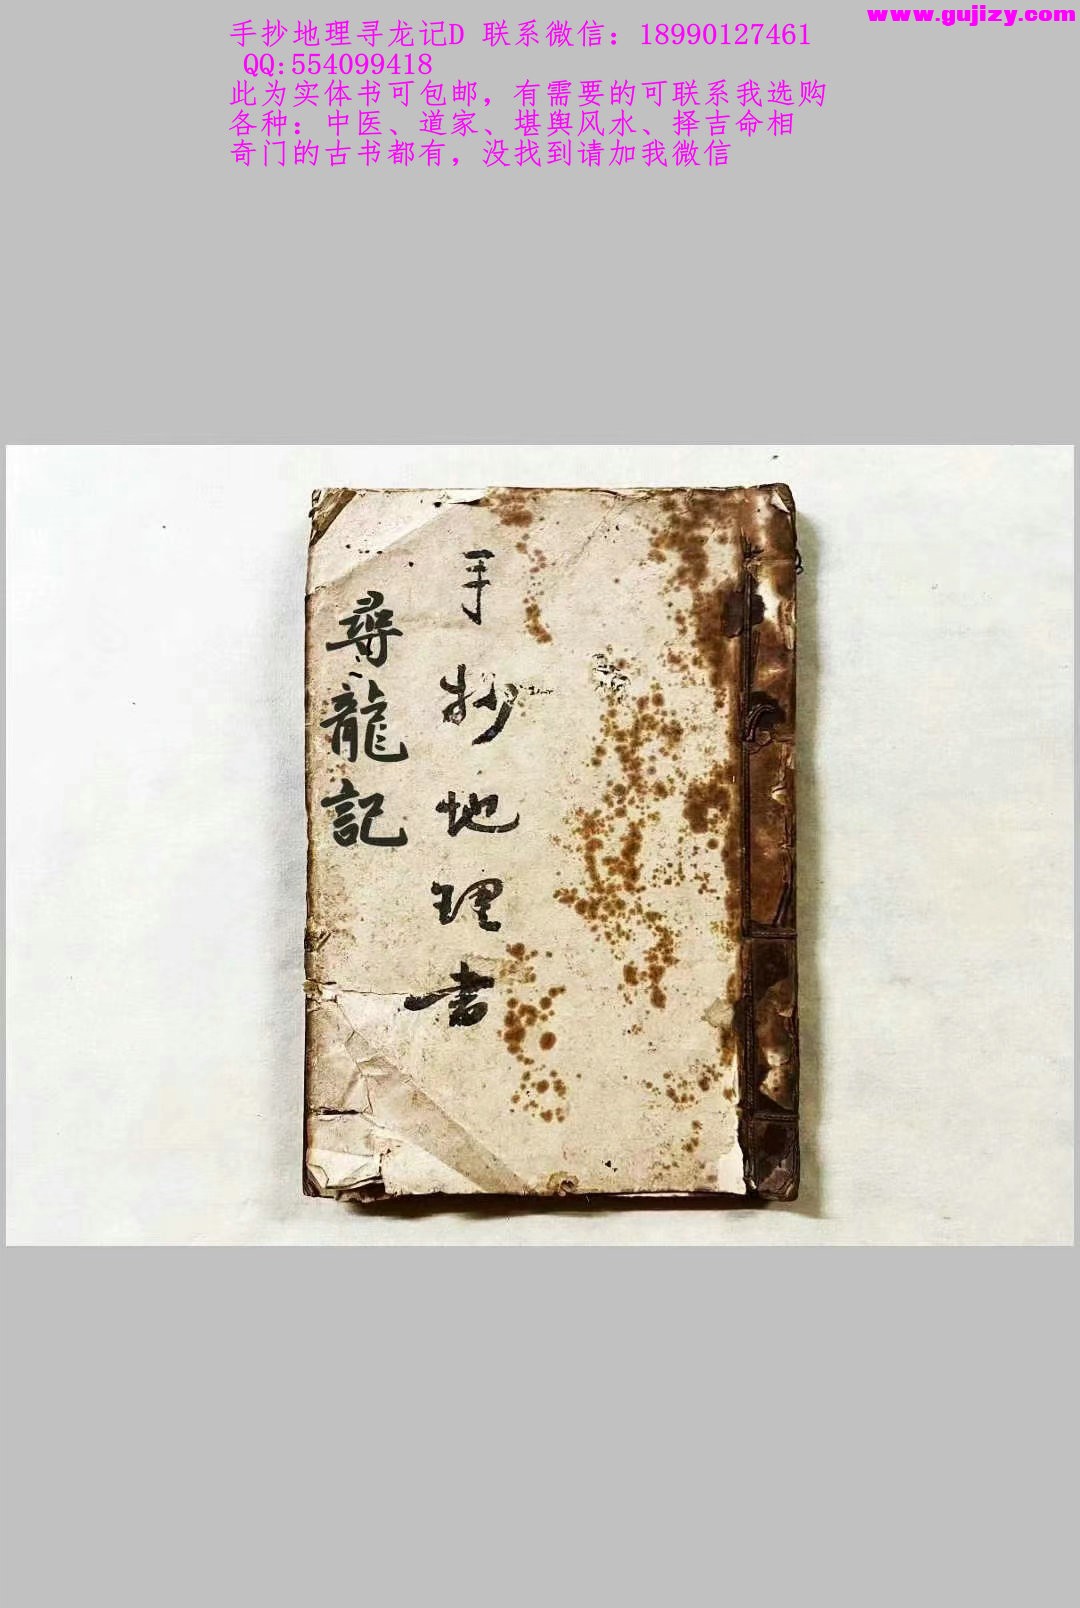 www.gujizy.com
手抄地理寻龙记D 联系微信：18990127461
QQ:554099418
此为实体书可包邮，有需要的可联系我选购
各种：中医、道家、堪舆风水、择吉命相
奇门的古书都有，没找到请加我微信
手抄地理书
尋龍記